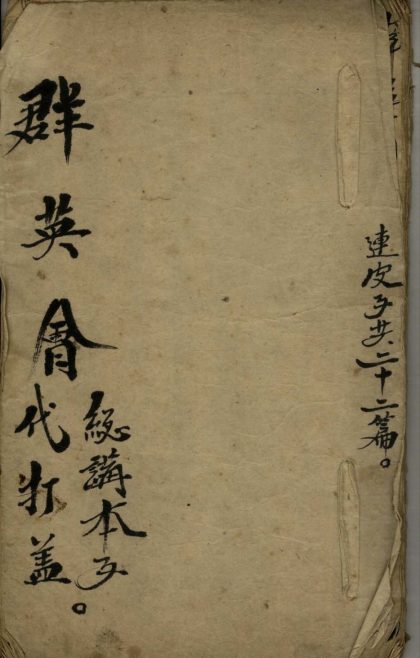 連皮子共二十二篇。
群英會代打盖
總講本子。